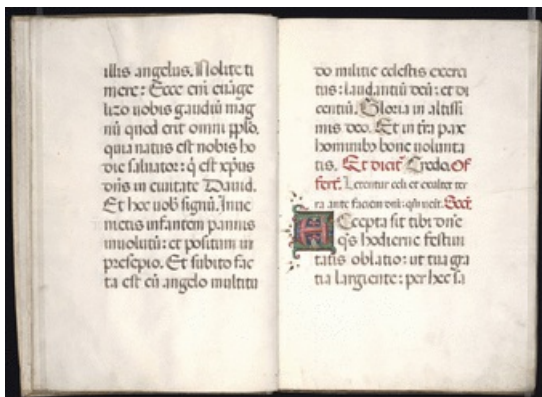 illis angelus. Nolite ti
mere: Ecce em̄ euāge
lizo uobis gaudiū mag
nū quod erit omni pplo.
quia natus est nobis ho
die saluator: q̄ est xp̄us
dn̄s in ciuitate Dauid.
Et hec uob̄ signū. Inue
nietis infantem pannis
inuolutū: et positum in
presepio. Et subito fac
ta est cū angelo multitu
do militie celestis exerci
tus: laudantiū deū: et di
centiū. Gloria in altissi
mis deo. Et in tr̄a pax
hominibꝰ bone volunta
tis. Et dicit᷑ Credo. Of
fert᷑. Letentur celi et exultet ter
ra ante faciem dn̄i: qm̄ uenit. Secr̄.
Accepta sit tibi dn̄e
q̄s hodierne festiui
tatis oblatio: ut tua gra
tia largiente: per hec sa